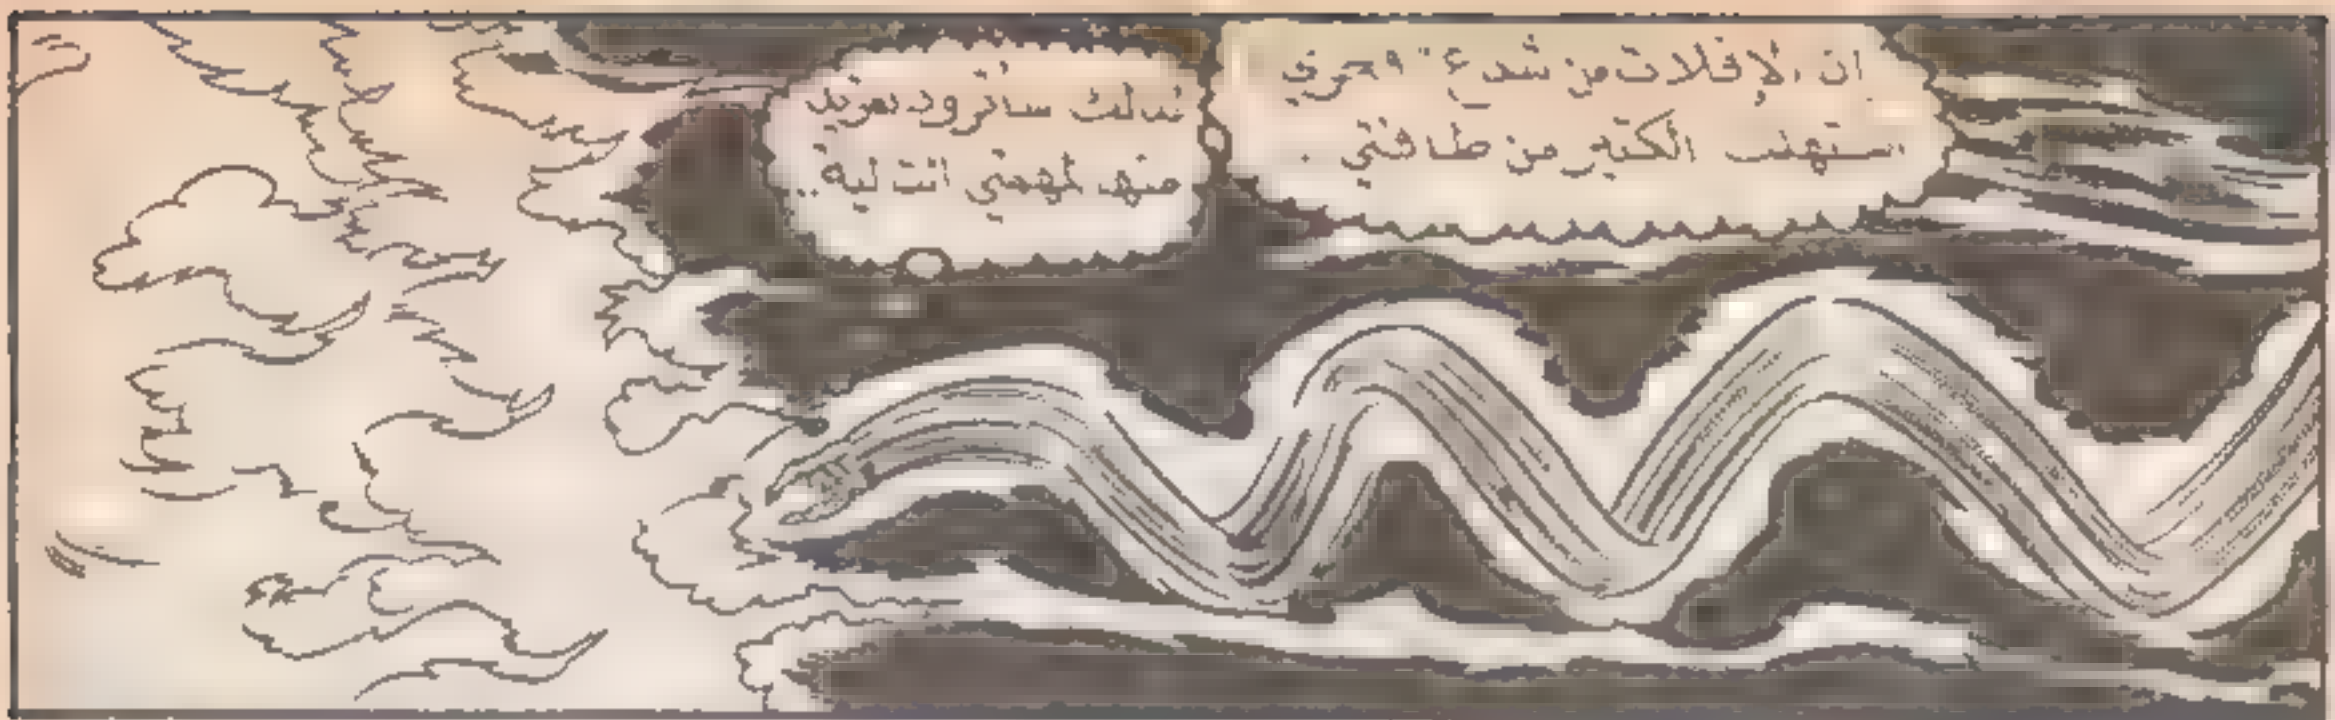 ان الإفلات من شدع
استهلك الكثير من طاقتي.
لذلك سأتزود بمزيد
منها لمهمتي التالية..